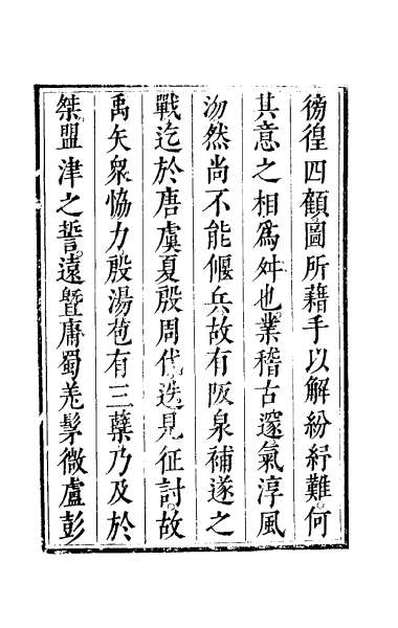 徬徨四顧圖所藉手以解紛紓難何
其意之相爲舛也業稽古邃氣淳風
沕然尚不能偃兵故有阪泉補遂之
戰迄於唐虞夏殷周代迭見征討故
禹矢衆恊力殷湯苞有三蘖乃及於
桀盟津之誓遠曁庸蜀羌髳微盧彭